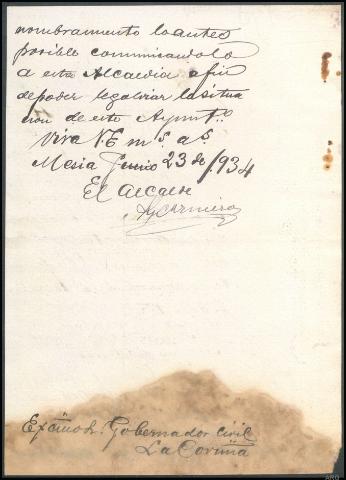 nombramiento lo antes
posible comunicandolo
a esta Alcaldia a fin
de poder legalizar la situa
cion de este Ayuntº
Viva V.E. mˢ. aˢ.
Mesia Junio 23 de 1.934
El Alcalde
Excmo Sr. Gobernador Civil
La Coruña
ARG